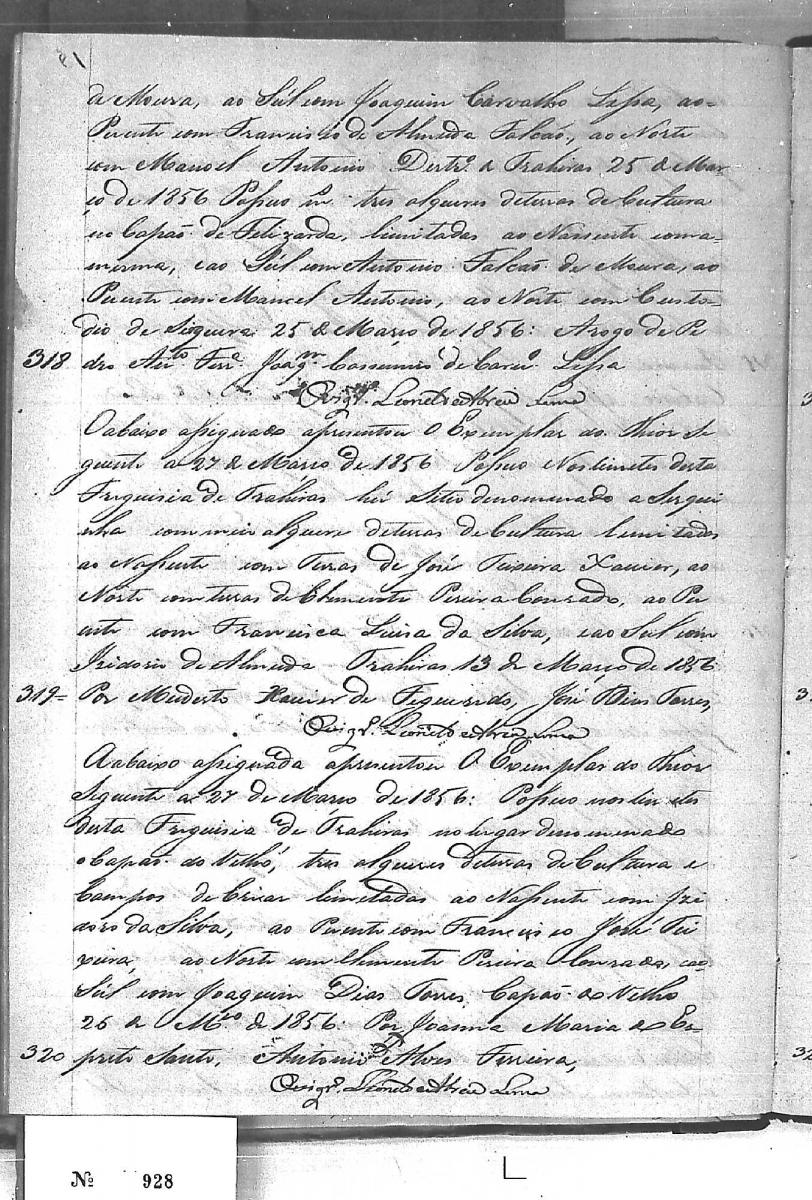 de Moura, ao Súl com Joaquim Carvalho Lessa, ao
Puente com Francisco de Almeda Falcaõ, ao Norte
com Manoel Antonio Destrº de Trahiras 25 de Mar
ço de 1856 Possuo tres alqueres de terras de Cultura
no Capaõ de Felizarda, limitadas ao Nassente com a
mesma, e ao Súl com Antonio Falcaõ de Moura, ao
Puente com Manoel Antonio, ao Norte com Custo
dio de Siqueira 25 de Março de 1856: Arogo de Pe
318 dro Antº Ferrª Joaqm Cassemiro de Carvº Lessa
O Vigrº. Lionel de Abreu Lima
O abaixo assignado apresentou O Exemplar do Thior Se
guente a 27 de Março de 1856 Possuo Nos limetes desta
Friguisia de Trahiras hú Sitio denomenado a Serqui
nha com meio alquere de terras de Cultura limitadas
ao Nassente com Terras de José Teixeira Xavier, ao
Norte com terras de Clemente Pereira Conrado, ao Pu
ente com Francisca Luisa da Silva, e ao Súl com
Izidorio de Almeda Trahiras 13 de Março de 1856
319= Por Mudesto Xavier de Figueredo, José Dias Torres,
O Vigrº. Lionel de Abreu Lima
A abaixo assignada apresentou O Exemplar do Thior
Seguente a 27 de Março de 1856: Possuo nos limetes
desta Friguisia de Trahiras no lugar denomenado
o Capaõ do Velho, tres alqueres de terras de Cultura e
Campos de Criar limitadas ao Nassente com Izi
doro da Silva, ao Puente com Francisco José Tei
xeira, ao Norte com Clemente Pereira Conrado, e ao
Súl com Joaquim Dias Torres Capaõ do Velho
26 de Mço de 1856: Por Joanna Maria do Es
320 preto Santo, Antonio Alves Ferreira,
O Vigrº. Lionel de Abreu Lima
Nº 928